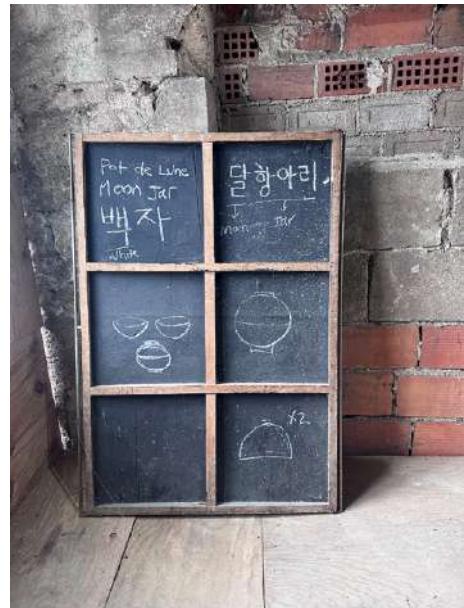 Pot de Lune
Moon Jar
백자
white
달항아리
moon Jar
x2